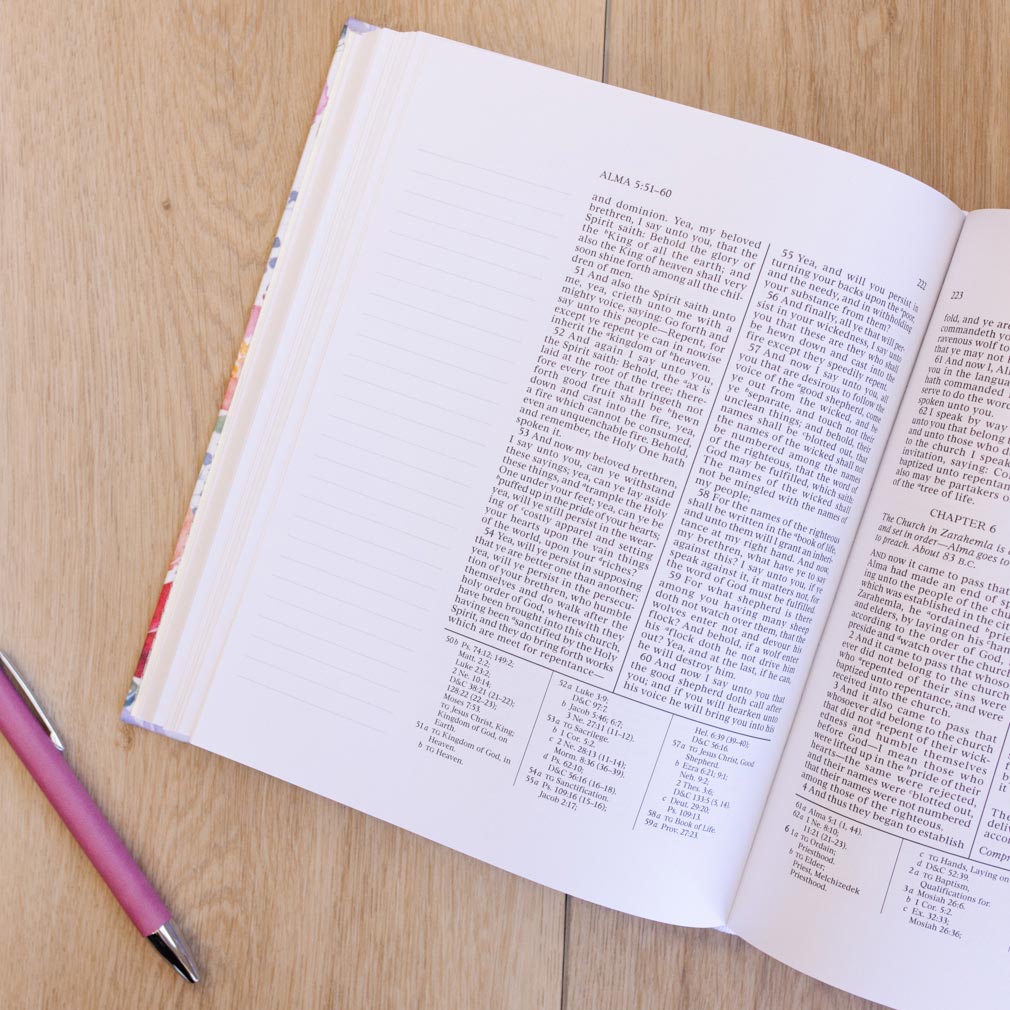 ALMA 5:51–60
222
and dominion. Yea, my beloved
brethren, I say unto you, that the
Spirit saith: Behold the glory of
the bKing of all the earth; and
also the King of heaven shall very
soon shine forth among all the chil-
dren of men.
51 And also the Spirit saith unto
me, yea, crieth unto me with a
mighty voice, saying: Go forth and
say unto this people—Repent, for
except ye repent ye can in nowise
inherit the akingdom of bheaven.
52 And again I say unto you,
the Spirit saith: Behold, the aax is
laid at the root of the tree; there-
fore every tree that bringeth not
forth good fruit shall be bhewn
down and cast into the fire, yea,
a fire which cannot be consumed,
even an unquenchable fire. Behold,
and remember, the Holy One hath
spoken it.
53 And now my beloved brethren,
I say unto you, can ye withstand
these sayings; yea, can ye lay aside
these things, and atrample the Holy
One under your feet; yea, can ye be
bpuffed up in the pride of your hearts;
yea, will ye still persist in the wear-
ing of ccostly apparel and setting
your hearts upon the vain things
of the world, upon your driches?
54 Yea, will ye persist in supposing
that ye are better one than another;
yea, will ye persist in the persecu-
tion of your brethren, who humble
themselves and do walk after the
holy order of God, wherewith they
have been brought into this church,
having been asanctified by the Holy
Spirit, and they do bring forth works
which are meet for repentance—
55 Yea, and will you persist in
turning your backs upon the apoor,
and the needy, and in withholding
your substance from them?
56 And finally, all ye that will per-
sist in your wickedness, I say unto
you that these are they who shall
be hewn down and cast into the
fire except they speedily repent.
57 And now I say unto you, all
you that are desirous to follow the
voice of the agood shepherd, come
ye out from the wicked, and be
ye bseparate, and touch not their
unclean things; and behold, their
names shall be cblotted out, that
the names of the wicked shall not
be numbered among the names
of the righteous, that the word of
God may be fulfilled, which saith:
The names of the wicked shall
not be mingled with the names of
my people;
58 For the names of the righteous
shall be written in the abook of life,
and unto them will I grant an inheri-
tance at my right hand. And now,
my brethren, what have ye to say
against this? I say unto you, if ye
speak against it, it matters not, for
the word of God must be fulfilled.
59 For what shepherd is there
among you having many sheep
doth not watch over them, that the
wolves enter not and devour his
flock? And behold, if a wolf enter
his aflock doth he not drive him
out? Yea, and at the last, if he can,
he will destroy him.
60 And now I say unto you that
the good shepherd doth call after
you; and if you will hearken unto
his voice he will bring you into his
50b Ps. 74:12; 149:2;
Matt. 2:2;
Luke 23:2;
2 Ne. 10:14;
D&C 38:21 (21–22);
128:22 (22–23);
Moses 7:53.
TG Jesus Christ, King;
Kingdom of God, on
Earth.
51a TG Kingdom of God, in
Heaven.
b TG Heaven.
52a Luke 3:9;
D&C 97:7.
b Jacob 5:46; 6:7;
3 Ne. 27:11 (11–12).
53a TG Sacrilege.
b 1 Cor. 5:2.
c 2 Ne. 28:13 (11–14);
Morm. 8:36 (36–39).
d Ps. 62:10;
D&C 56:16 (16–18).
54a TG Sanctification.
55a Ps. 109:16 (15–16);
Jacob 2:17;
Hel. 6:39 (39–40);
D&C 56:16.
57a TG Jesus Christ, Good
Shepherd.
b Ezra 6:21; 9:1;
Neh. 9:2;
2 Thes. 3:6;
D&C 133:5 (5, 14).
c Deut. 29:20;
Ps. 109:13.
58a TG Book of Life.
59a Prov. 27:23.
223
fold, and ye are
commandeth you
ravenous wolf to
that ye may not
61 And now I, Al
you in the langua
hath commanded
serve to do the wor
spoken unto you.
62 I speak by way
unto you that belong
and unto those who d
to the church I speak
invitation, saying: Co
baptized unto repenta
also may be partakers o
of the atree of life.
CHAPTER 6
The Church in Zarahemla is
and set in order—Alma goes to
to preach. About 83 B.C.
AND now it came to pass that
Alma had made an end of s
ing unto the people of the chu
which was established in the cit
Zarahemla, he aordained bprie
and elders, by laying on his chan
according to the order of God,
preside and dwatch over the church
2 And it came to pass that whoso
ever did not belong to the church
who arepented of their sins were
baptized unto repentance, and were
received into the church.
3 And it also came to pass that
whosoever did belong to the church
that did not arepent of their wick-
edness and humble themselves
before God—I mean those who
were lifted up in the bpride of their
hearts—the same were rejected,
and their names were cblotted out,
that their names were not numbered
among those of the righteous.
4 And thus they began to establish
b
it
The
deliv
acco
Compr
61a Alma 5:1 (1, 44).
62a 1 Ne. 8:10;
11:21 (21–23).
6 1a TG Ordain;
Priesthood.
b TG Elder;
Priest, Melchizedek
Priesthood.
c TG Hands, Laying on
d D&C 52:39.
2a TG Baptism,
Qualifications for.
3a Mosiah 26:6.
b 1 Cor. 5:2.
c Ex. 32:33;
Mosiah 26:36;